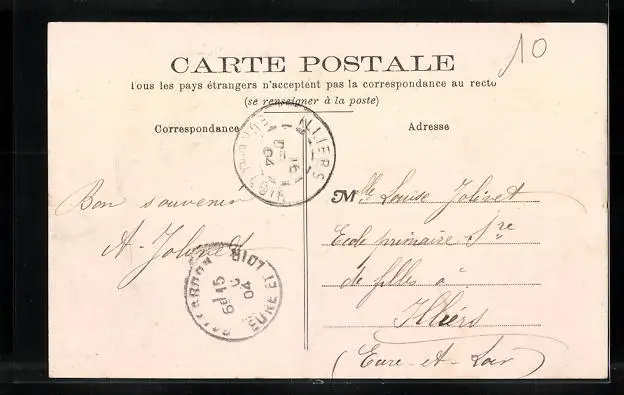 10
CARTE POSTALE
Tous les pays étrangers n'acceptent pas la correspondance au recto
(se renseigner à la poste)
Correspondance
Adresse
ILLIERS
16
04
Bon souvenir
A. Jolivet
Mlle Louise Jolivet
Ecole primaire Sre
de filles à
Illiers
(Eure-et-Loir)
EURE ET LOIR
6E 15
04